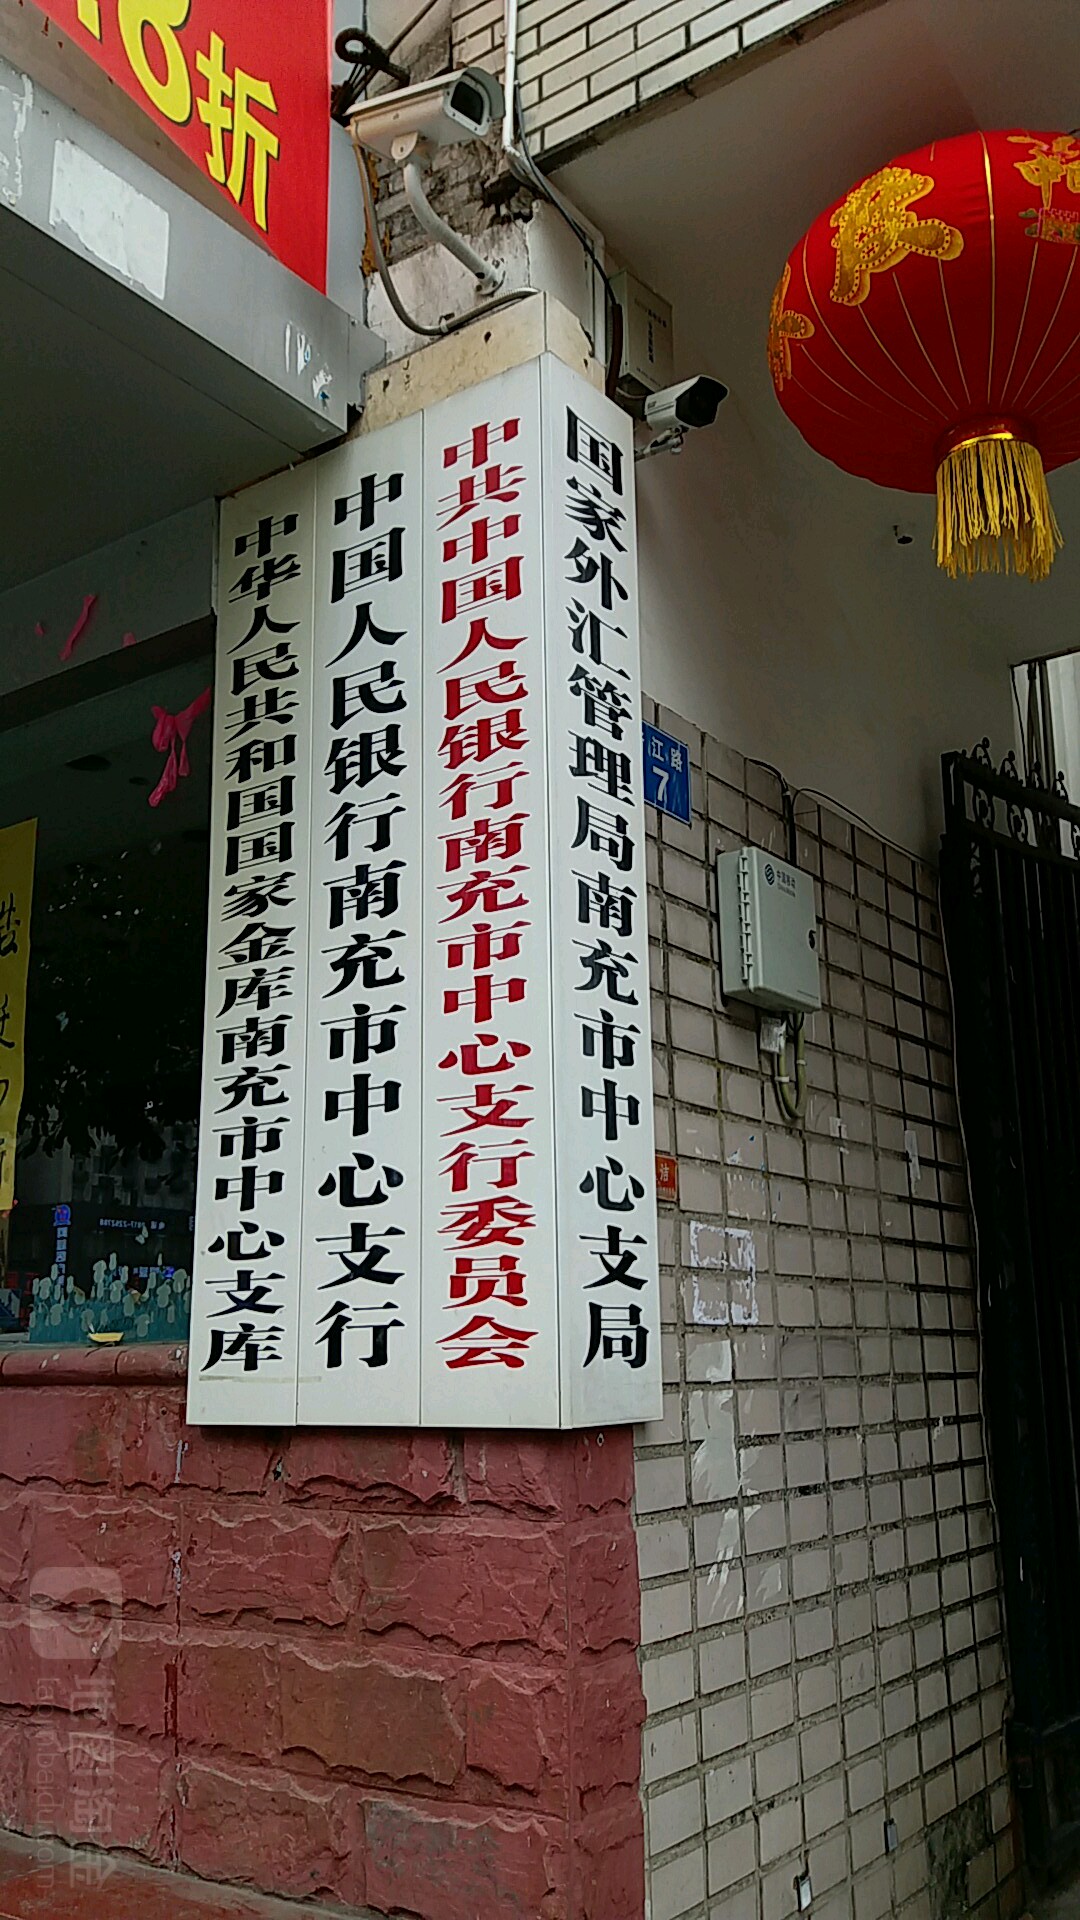 8折
国家外汇管理局南充市中心支局
中共中国人民银行南充市中心支行委员会
中国人民银行南充市中心支行
中华人民共和国国家金库南充市中心支库
江路
7
中国移动
洁
地图淘金